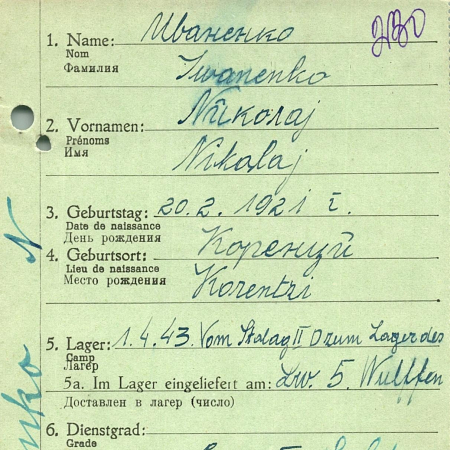 230
1. Name: Иваненко
Nom
Фамилия
Iwanenko
2. Vornamen: Николај
Prénoms
Имя
Nikolaj
3. Geburtstag: 20.2.1921 г.
Date de naissance
День рождения
4. Geburtsort: Коренций
Lieu de naissance
Место рождения
Korentzi
5. Lager: 1.4.43. Vom Stalag II D zum Lager des
Camp
Лагерь
5a. Im Lager eingeliefert am: Lw. 5. Wulffen
Доставлен в лагерь (число)
6. Dienstgrad:
Grade
N
nko